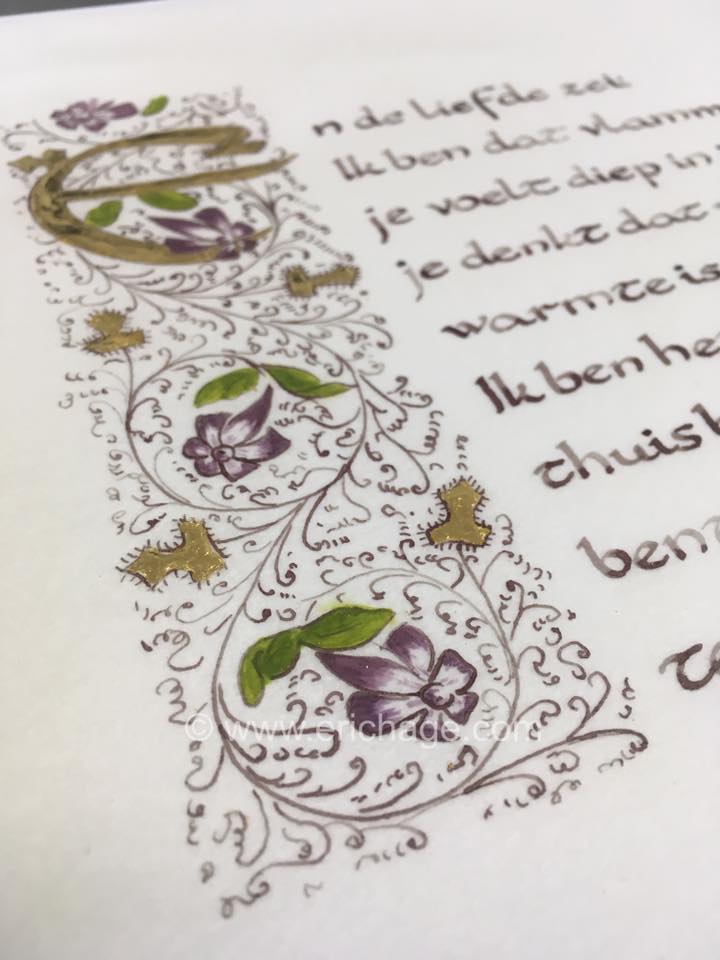 En de liefde zei:
Ik ben dat vlamm
je voelt diep in
je denkt dat
warmte is
Ik ben he
thuis
ben
© www.erichage.com